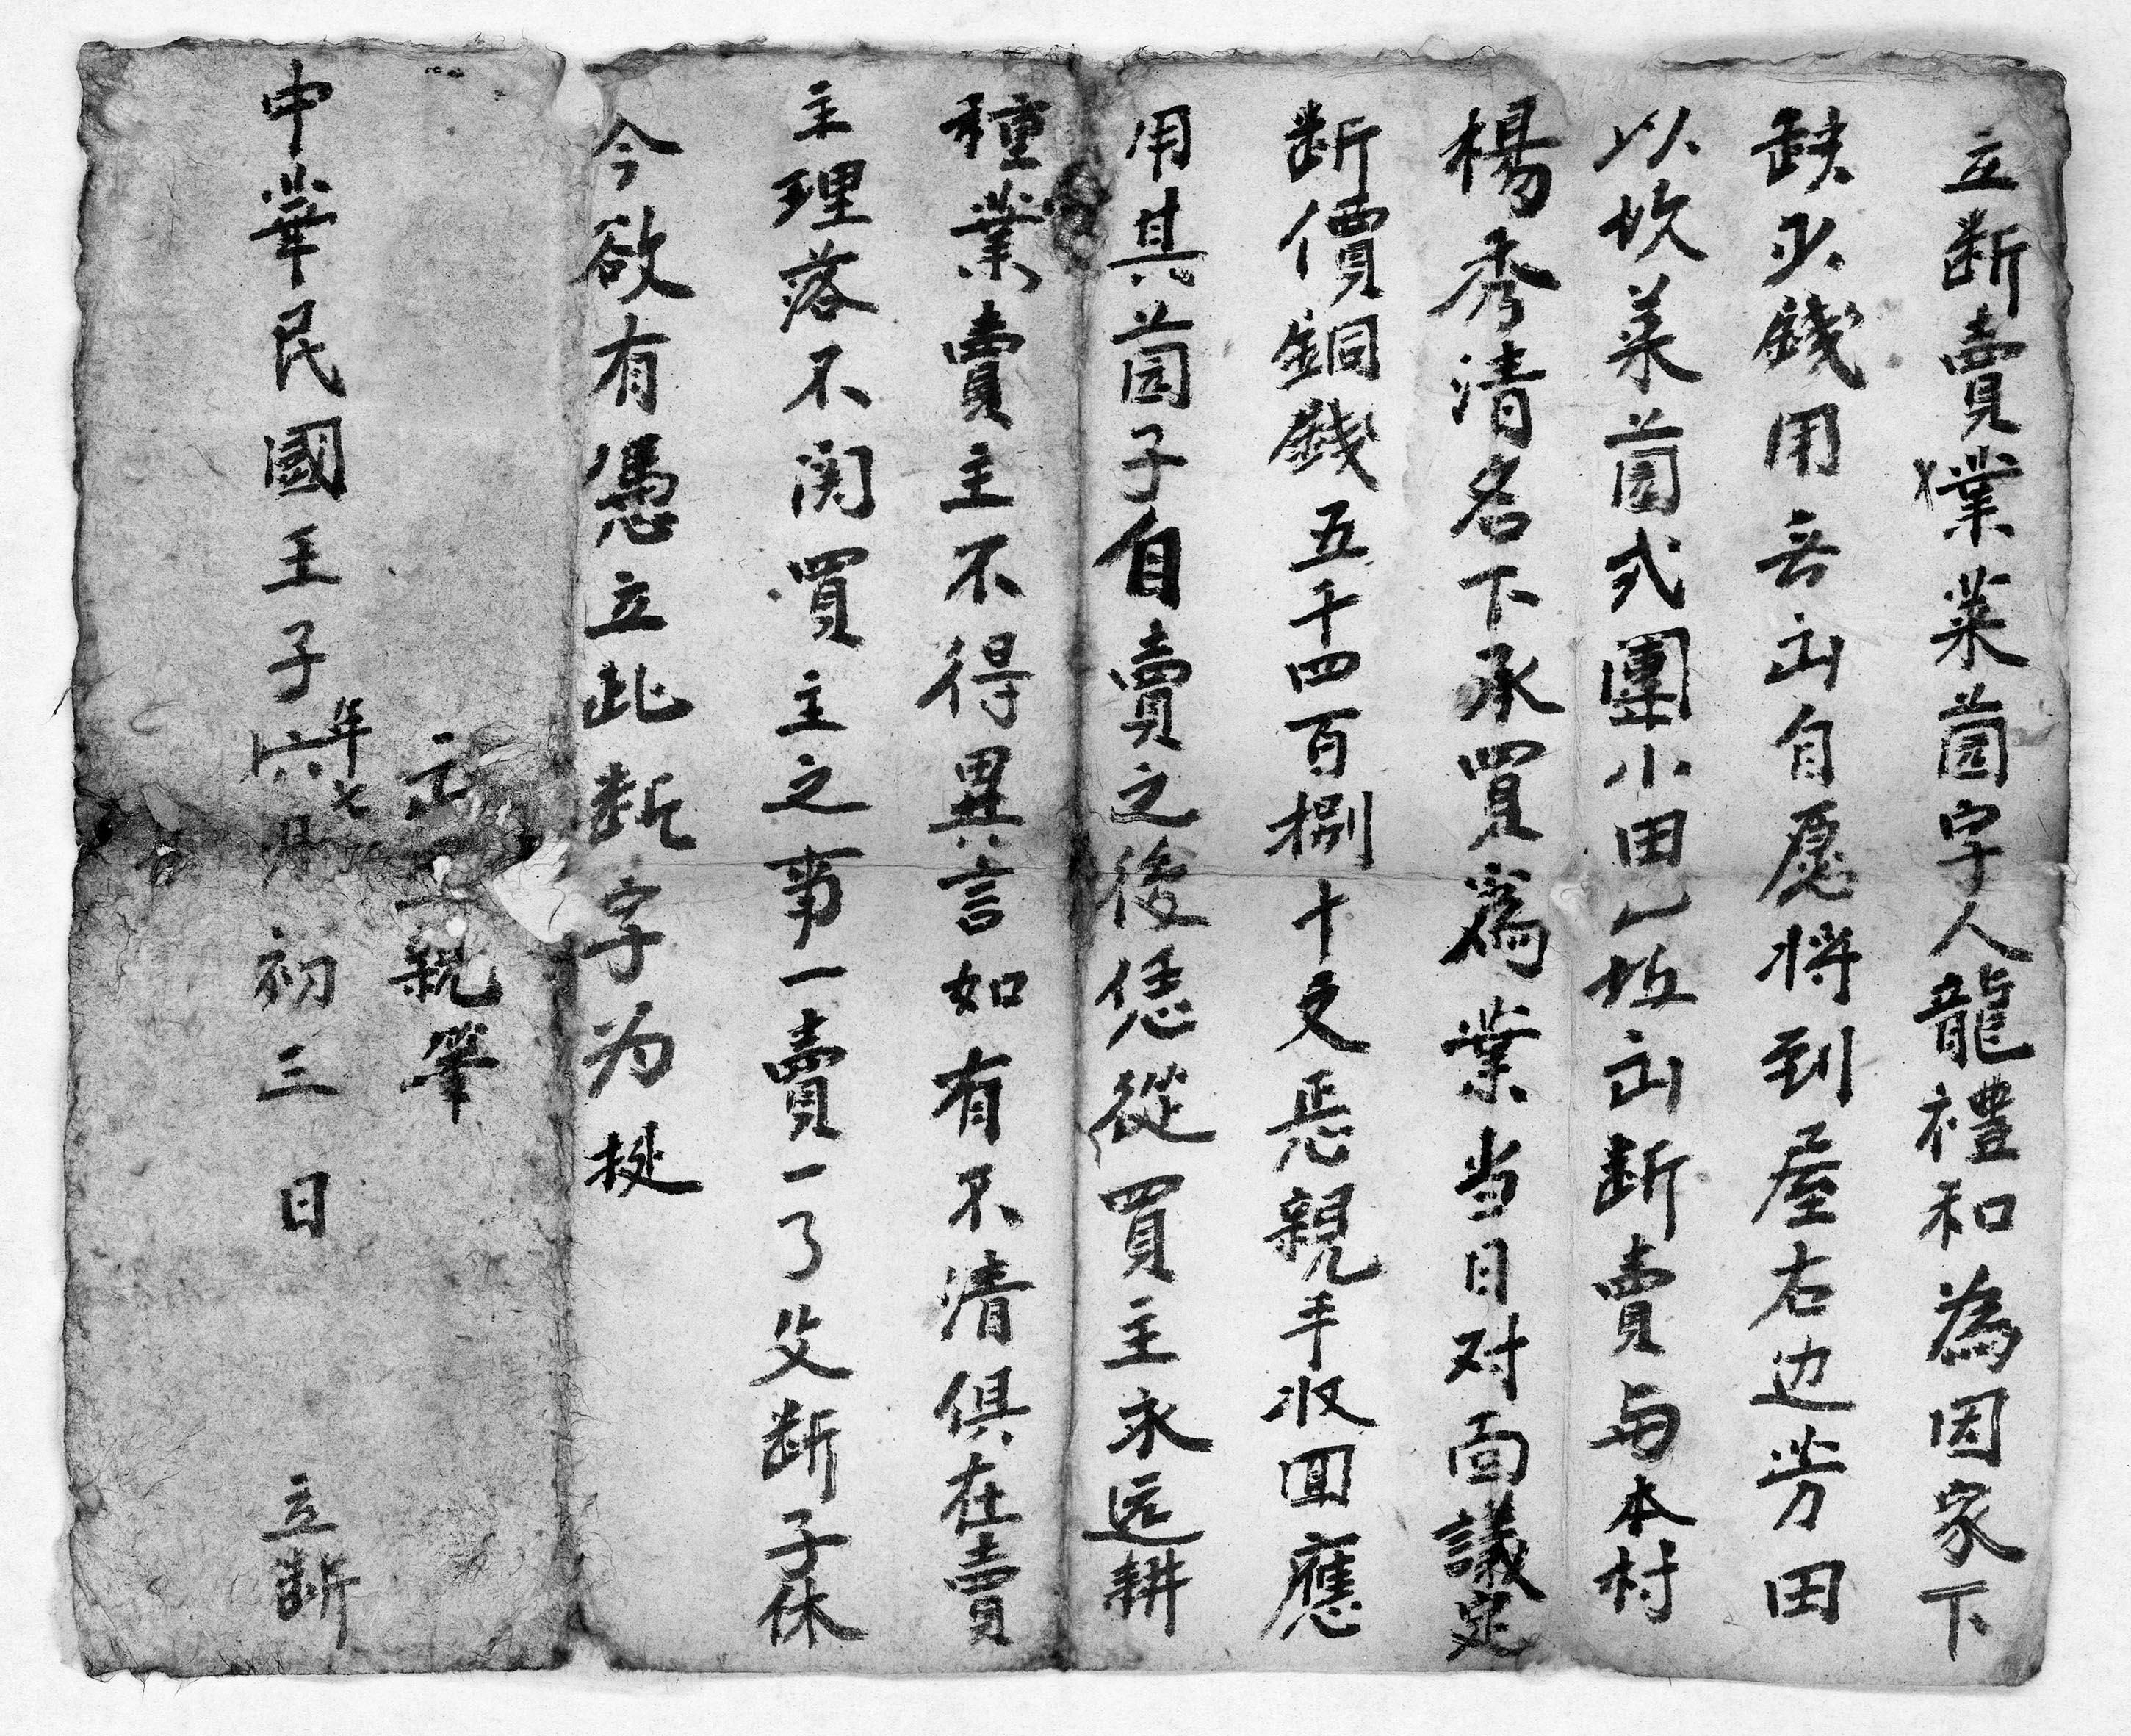 立断賣業菜園字人龍禮和為因家下
缺少錢用無出自愿将到屋右边芳田
以坎菜園弍團小田乙坵出断賣与本村
楊秀清名下承買為業当日对面議定
断價銅錢五千四百捌十文悉親手收回應
用其園子自賣之後恁從買主永远耕
種業賣主不得異言如有不清俱在賣
主理落不関買主之事一賣一了父断子休
今欲有憑立此断字为挺
親筆
中華民國壬子年七六月初三日 立断